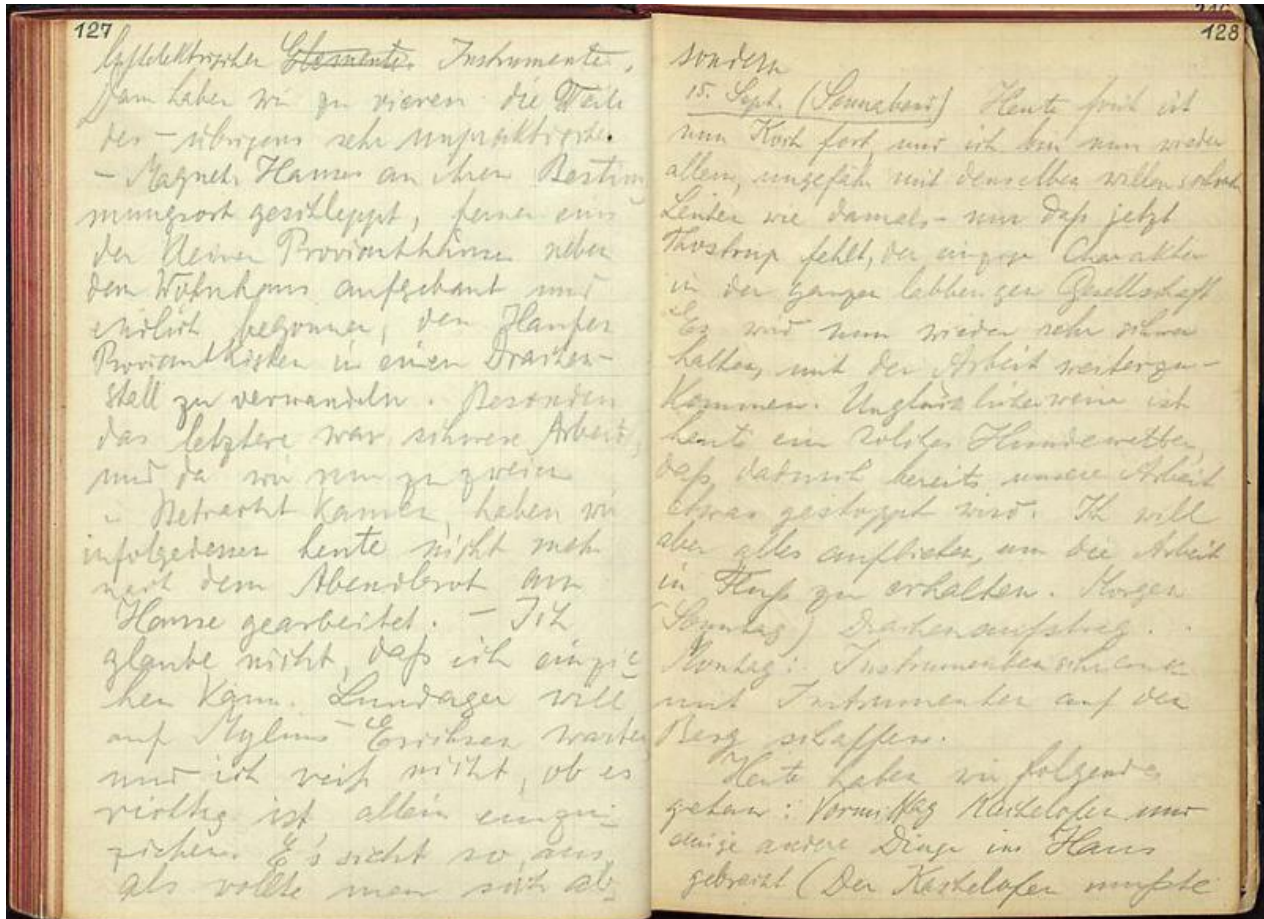 127
luftelektrischer Elemente Instrumente.
Dann haben wir zu vieren die Teile
des – übrigens sehr unpraktischen
– Magnet. Hauses an ihren Bestim
mungsort geschleppt, ferner eins
der kleinen Provianthäuser neben
dem Wohnhaus aufgebaut und
endlich begonnen, den Haufen
Proviantkisten in einen Drachen-
stall zu verwandeln. Besonders
das letztere war schwere Arbeit,
und da wir nur zu zweien
in Betracht kamen, haben wir
infolgedessen heute nicht mehr
nach dem Abendbrot am
Hause gearbeitet. – Ich
glaube nicht, daß ich einzie
hen kann. Lundager will
auf Mylius-Erichsen warten
und ich weiß nicht, ob es
richtig ist allein einzu-
ziehen. Es sieht so aus,
als wollte man sich ab
128
sondern
15. Sept. (Sonnabend) Heute früh ist
nun Koch fort, und ich bin nun wieder
allein, ungefähr mit denselben willensschwachen
Leuten wie damals – nur daß jetzt
Thostrup fehlt, der einzige Charakter
in der ganzen Gesellschaft
Es wird nun wieder sehr schwer
halten, mit der Arbeit weiterzu-
kommen. Unglücklicherweise ist
heute ein solches Hundewetter,
daß dadurch bereits unsere Arbeit
etwas gestoppt wird. Ich will
aber alles aufbieten, um die Arbeit
in Fluß zu erhalten. Morgen
(Sonntag) Drachenaufstieg.
Montag: Instrumenten
mit Instrumenten auf den
Berg schaffen.
Heute haben wir folgendes
getan: Vormittag Kachelofen und
einige andere Dinge ins Haus
gebracht (Der Kachelofen mußte